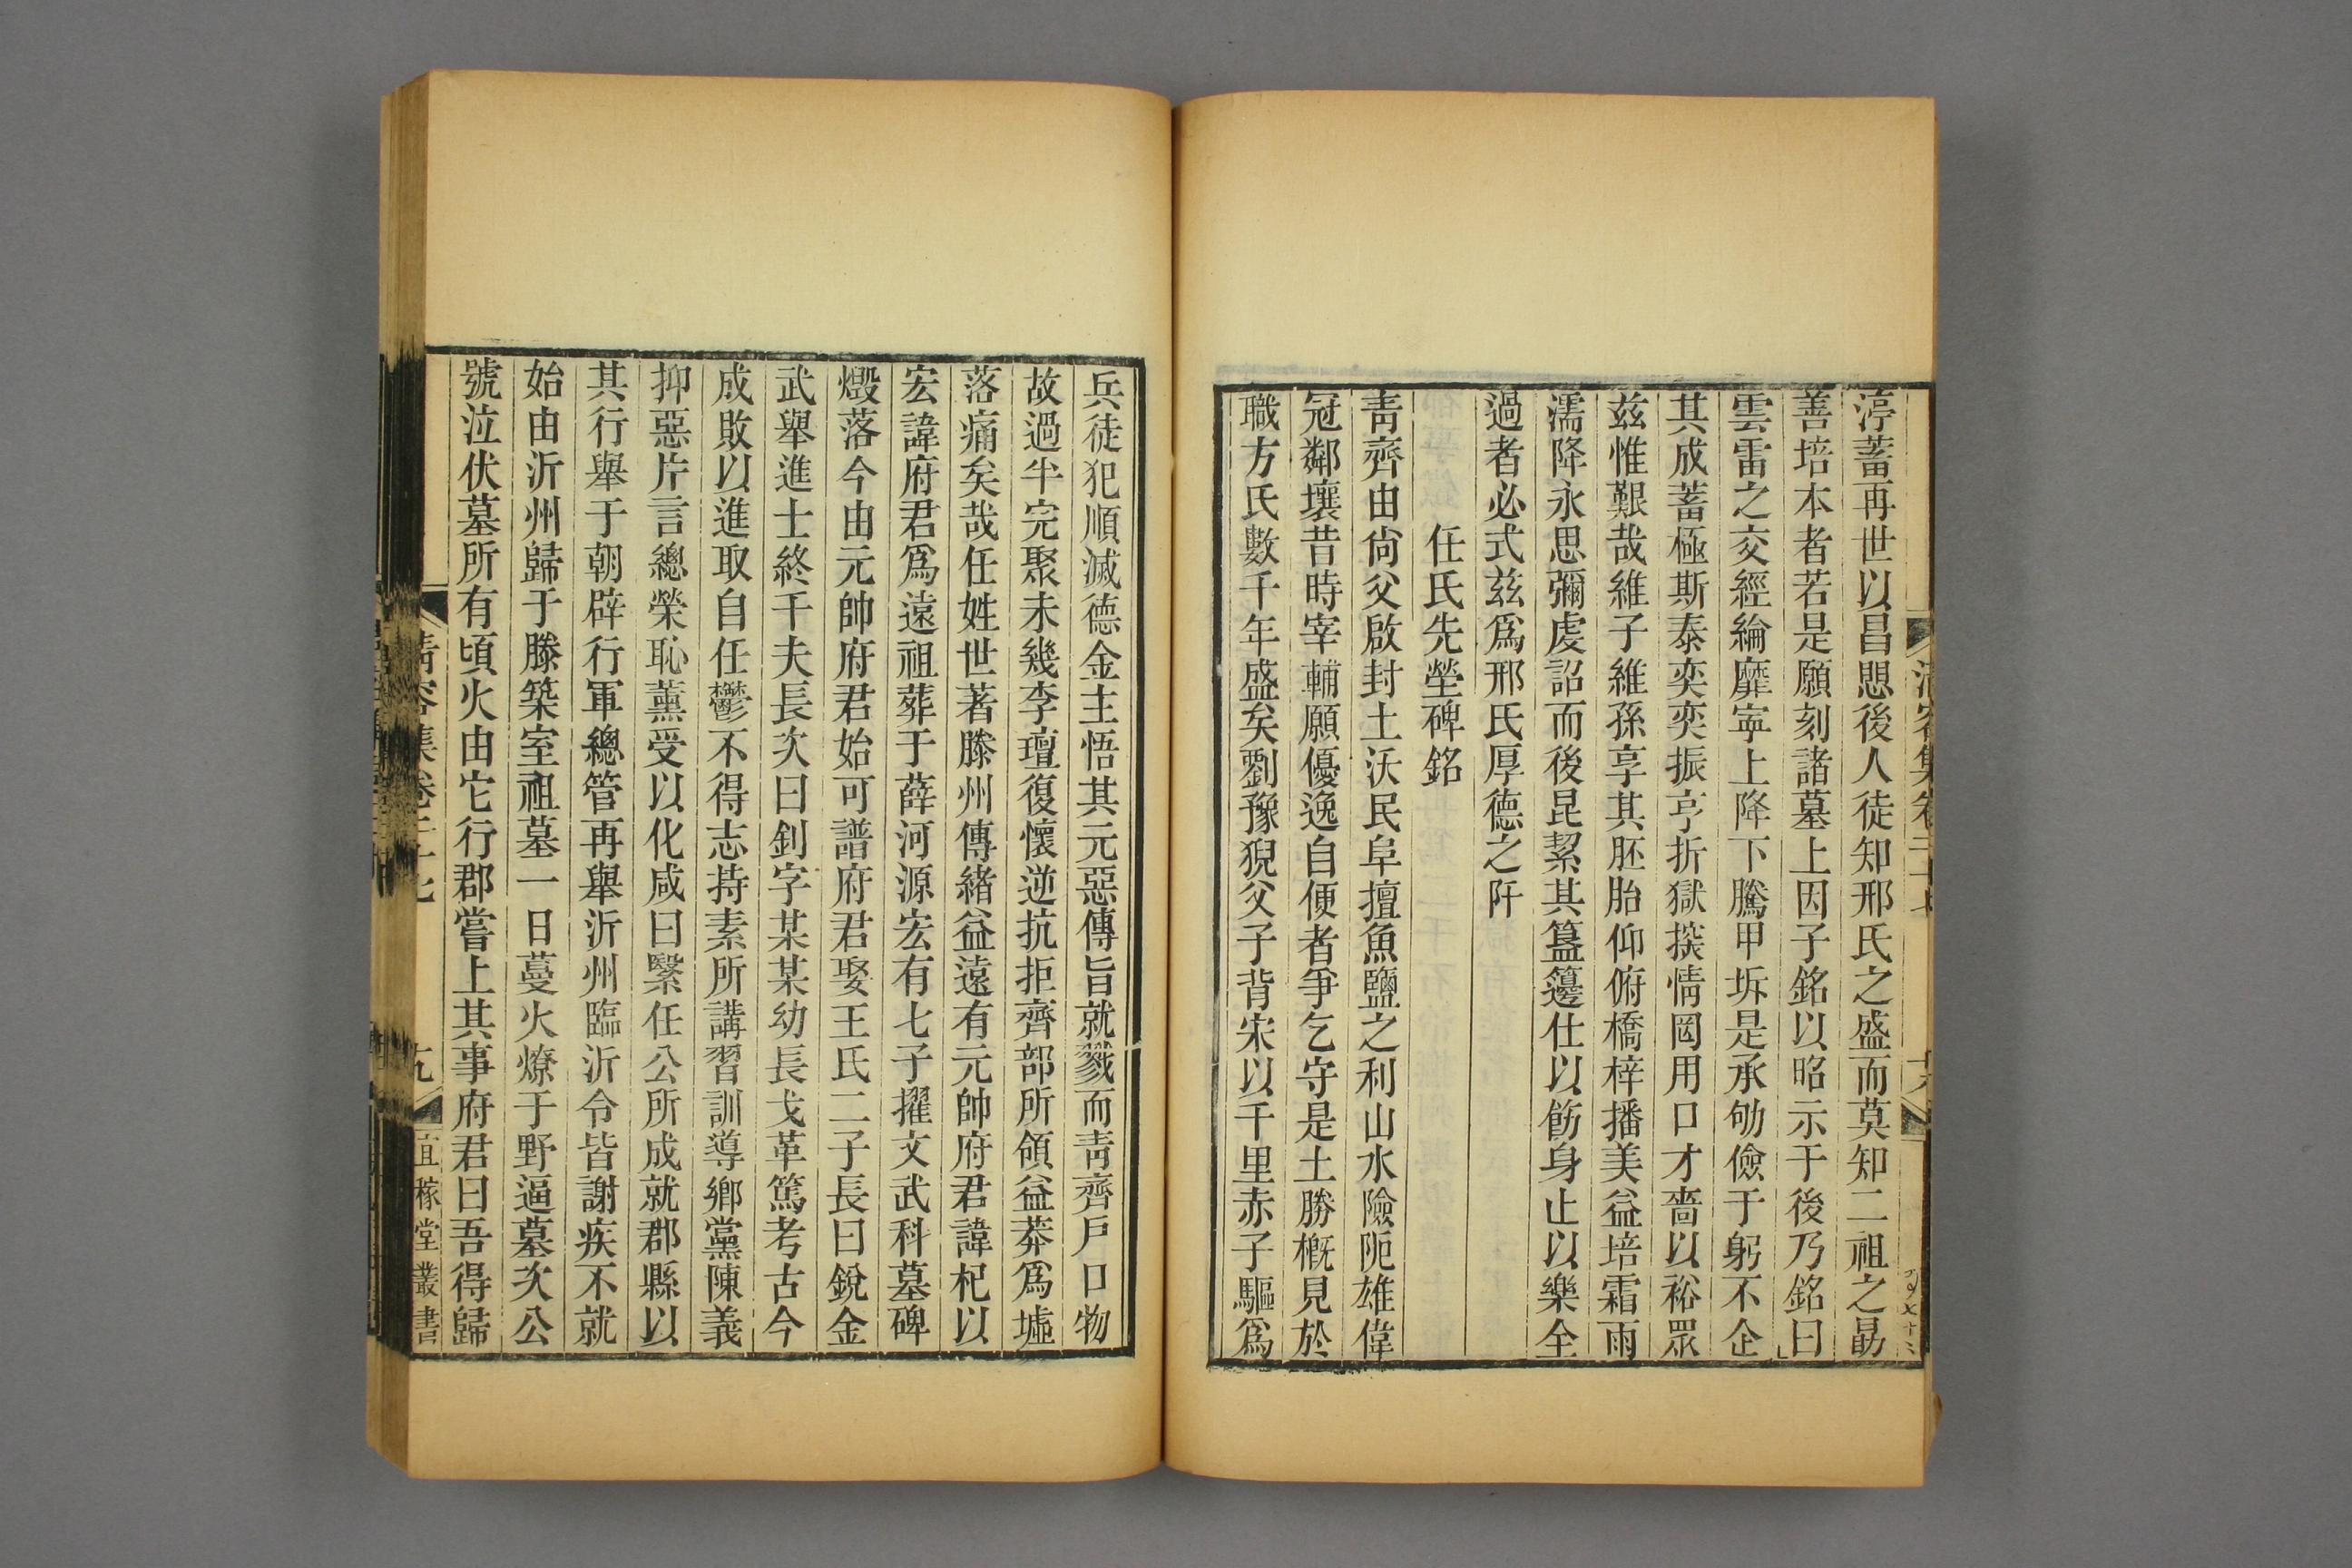 渟蓄再世以昌愳後人徒知邢氏之盛而莫知二祖之勗
善培本者若是願刻諸墓上因子銘以昭示于後乃銘曰
雲雷之交經綸靡寧上降下騰甲坼是承劬儉于躬不企
其成蓄極斯泰奕奕振亨折獄掞情罔用口才嗇以裕眾
茲惟艱哉維子維孫享其胚胎仰俯橋梓播美益培霜雨
濡降永思彌虔詔而後昆絜其簋籩仕以飭身止以樂全
過者必式茲爲邢氏厚德之阡
任氏先塋碑銘
靑齊由尙父啟封土沃民阜擅魚鹽之利山水險阨雄偉
冠鄰壤昔時宰輔願優逸自便者爭乞守是土勝槪見於
職方氏數千年盛矣劉豫猊父子背宋以千里赤子驅爲
兵徒犯順滅德金主悟其元惡傳旨就戮而靑齊戶口物
故過半完聚未幾李璮復懷逆抗拒齊部所領益莽爲墟
落痛矣哉任姓世著滕州傳緖益遠有元帥府君諱杞以
宏諱府君爲遠祖葬于薛河源宏有七子擢文武科墓碑
燬落今由元帥府君始可譜府君娶王氏二子長曰銳金
武舉進士終千夫長次曰釗字某某幼長戈革篤考古今
成敗以進取自任鬱不得志持素所講習訓導鄉黨陳義
抑惡片言總榮恥薰受以化咸曰繄任公所成就郡縣以
其行舉于朝辟行軍總管再舉沂州臨沂令皆謝疾不就
始由沂州歸于滕築室祖墓一日蔓火燎于野逼墓次公
號泣伏墓所有頃火由它行郡嘗上其事府君曰吾得歸
清容集卷三十七
九
宜稼堂叢書